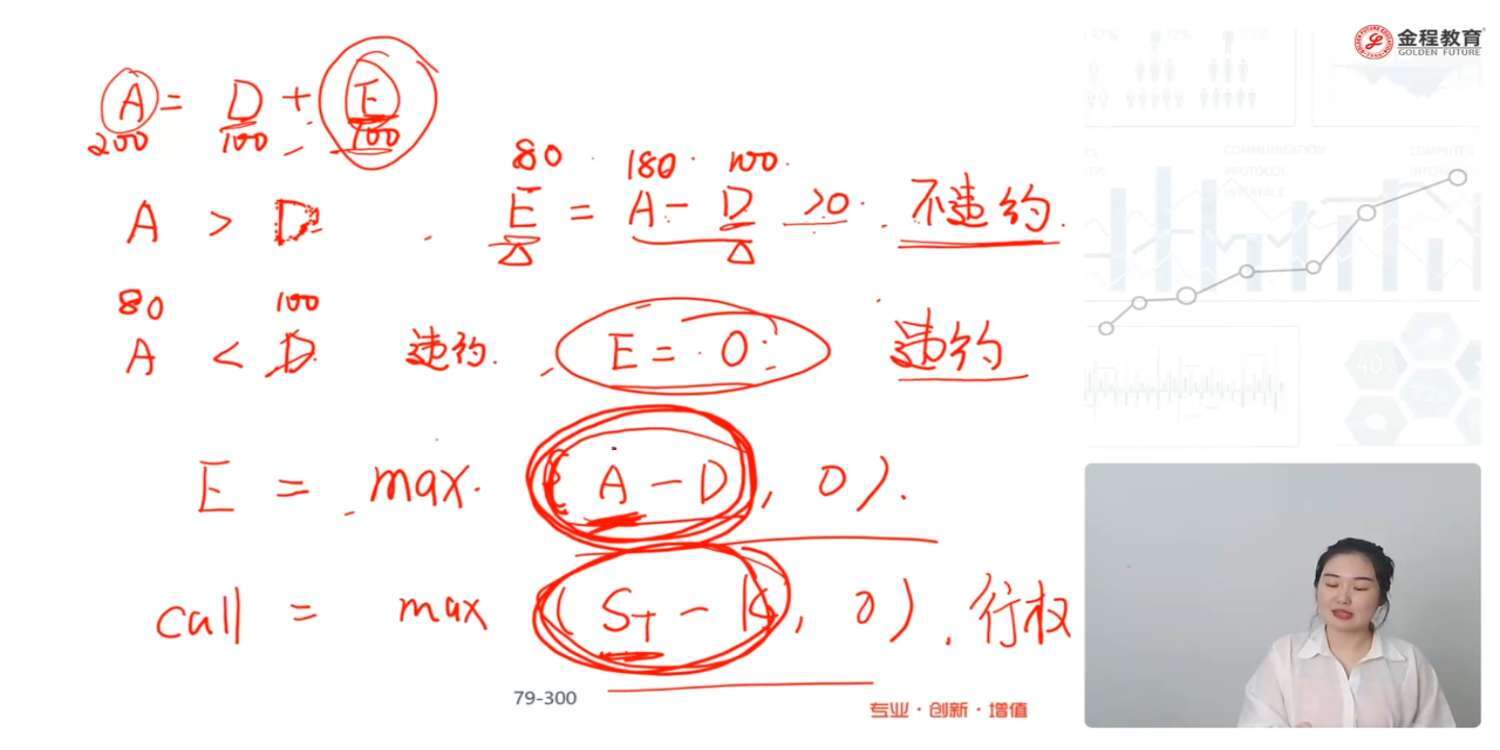 金程教育
GOLDEN FUTURE
A = D + E
200 100 100
80 180 100
A > D E = A - D >0 不违约
80 100
A < D 违约 E = 0 违约
E = max ( A - D , 0 ) .
call = max ( ST - K , 0 ) . 行权
79-300
专业·创新·增值